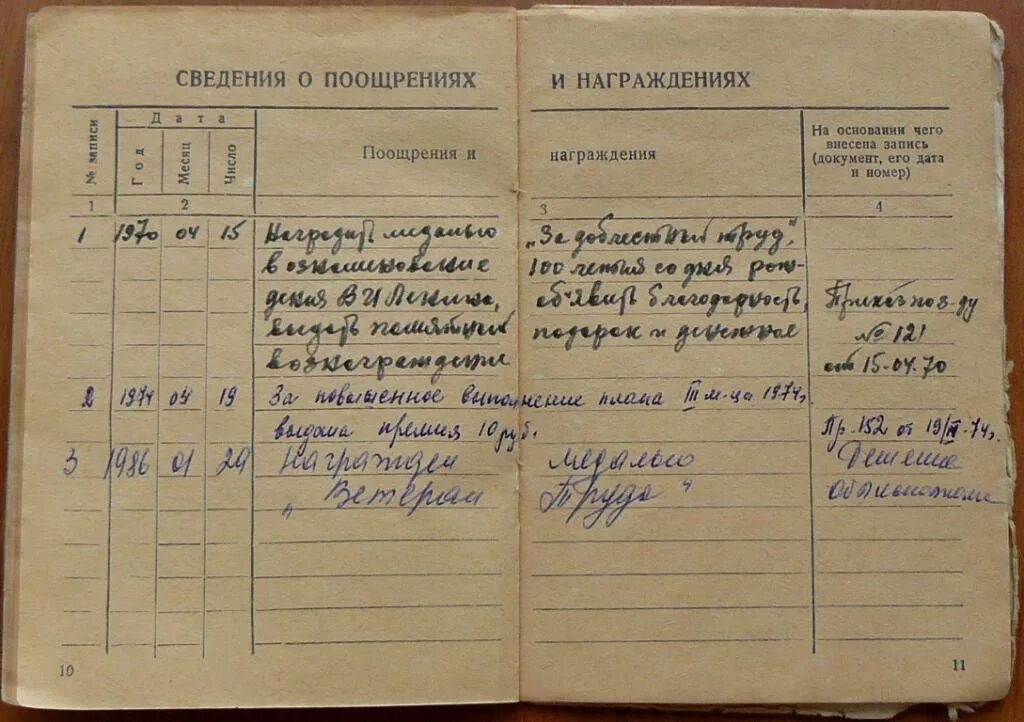 СВЕДЕНИЯ О ПООЩРЕНИЯХ И НАГРАЖДЕНИЯХ
№ записи
Дата
Год
Месяц
Число
Поощрения и награждения
На основании чего
внесена запись
(документ, его дата
и номер)
1 2 3 4
1 1970 04 15 Наградить медалью „За доблестный труд",
в ознаменование 100 летия со дня рож-
дения В И Ленина, объявить благодарность, Приказ по з-ду
выдать памятный подарок и денежное № 121
вознаграждение от 15-04.70
2 1974 04 19 За повышенное выполнение плана III м-ца 1974г.
выдана премия 10 руб. Пр. 152 от 19/IV-74г.
3 1986 01 29 Награжден медалью Решение
„Ветеран Труда"
10
11